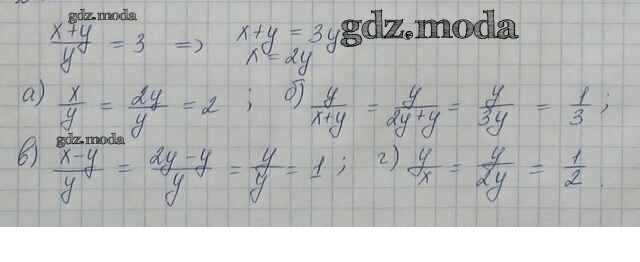 gdz.moda
(x+y)/y = 3 => x+y = 3y gdz.moda
x = 2y
а) x/y = 2y/y = 2 ; б) y/(x+y) = y/(2y+y) = y/3y = 1/3 ;
gdz.moda
в) (x-y)/y = (2y-y)/y = y/y = 1 ; г) y/x = y/2y = 1/2 .